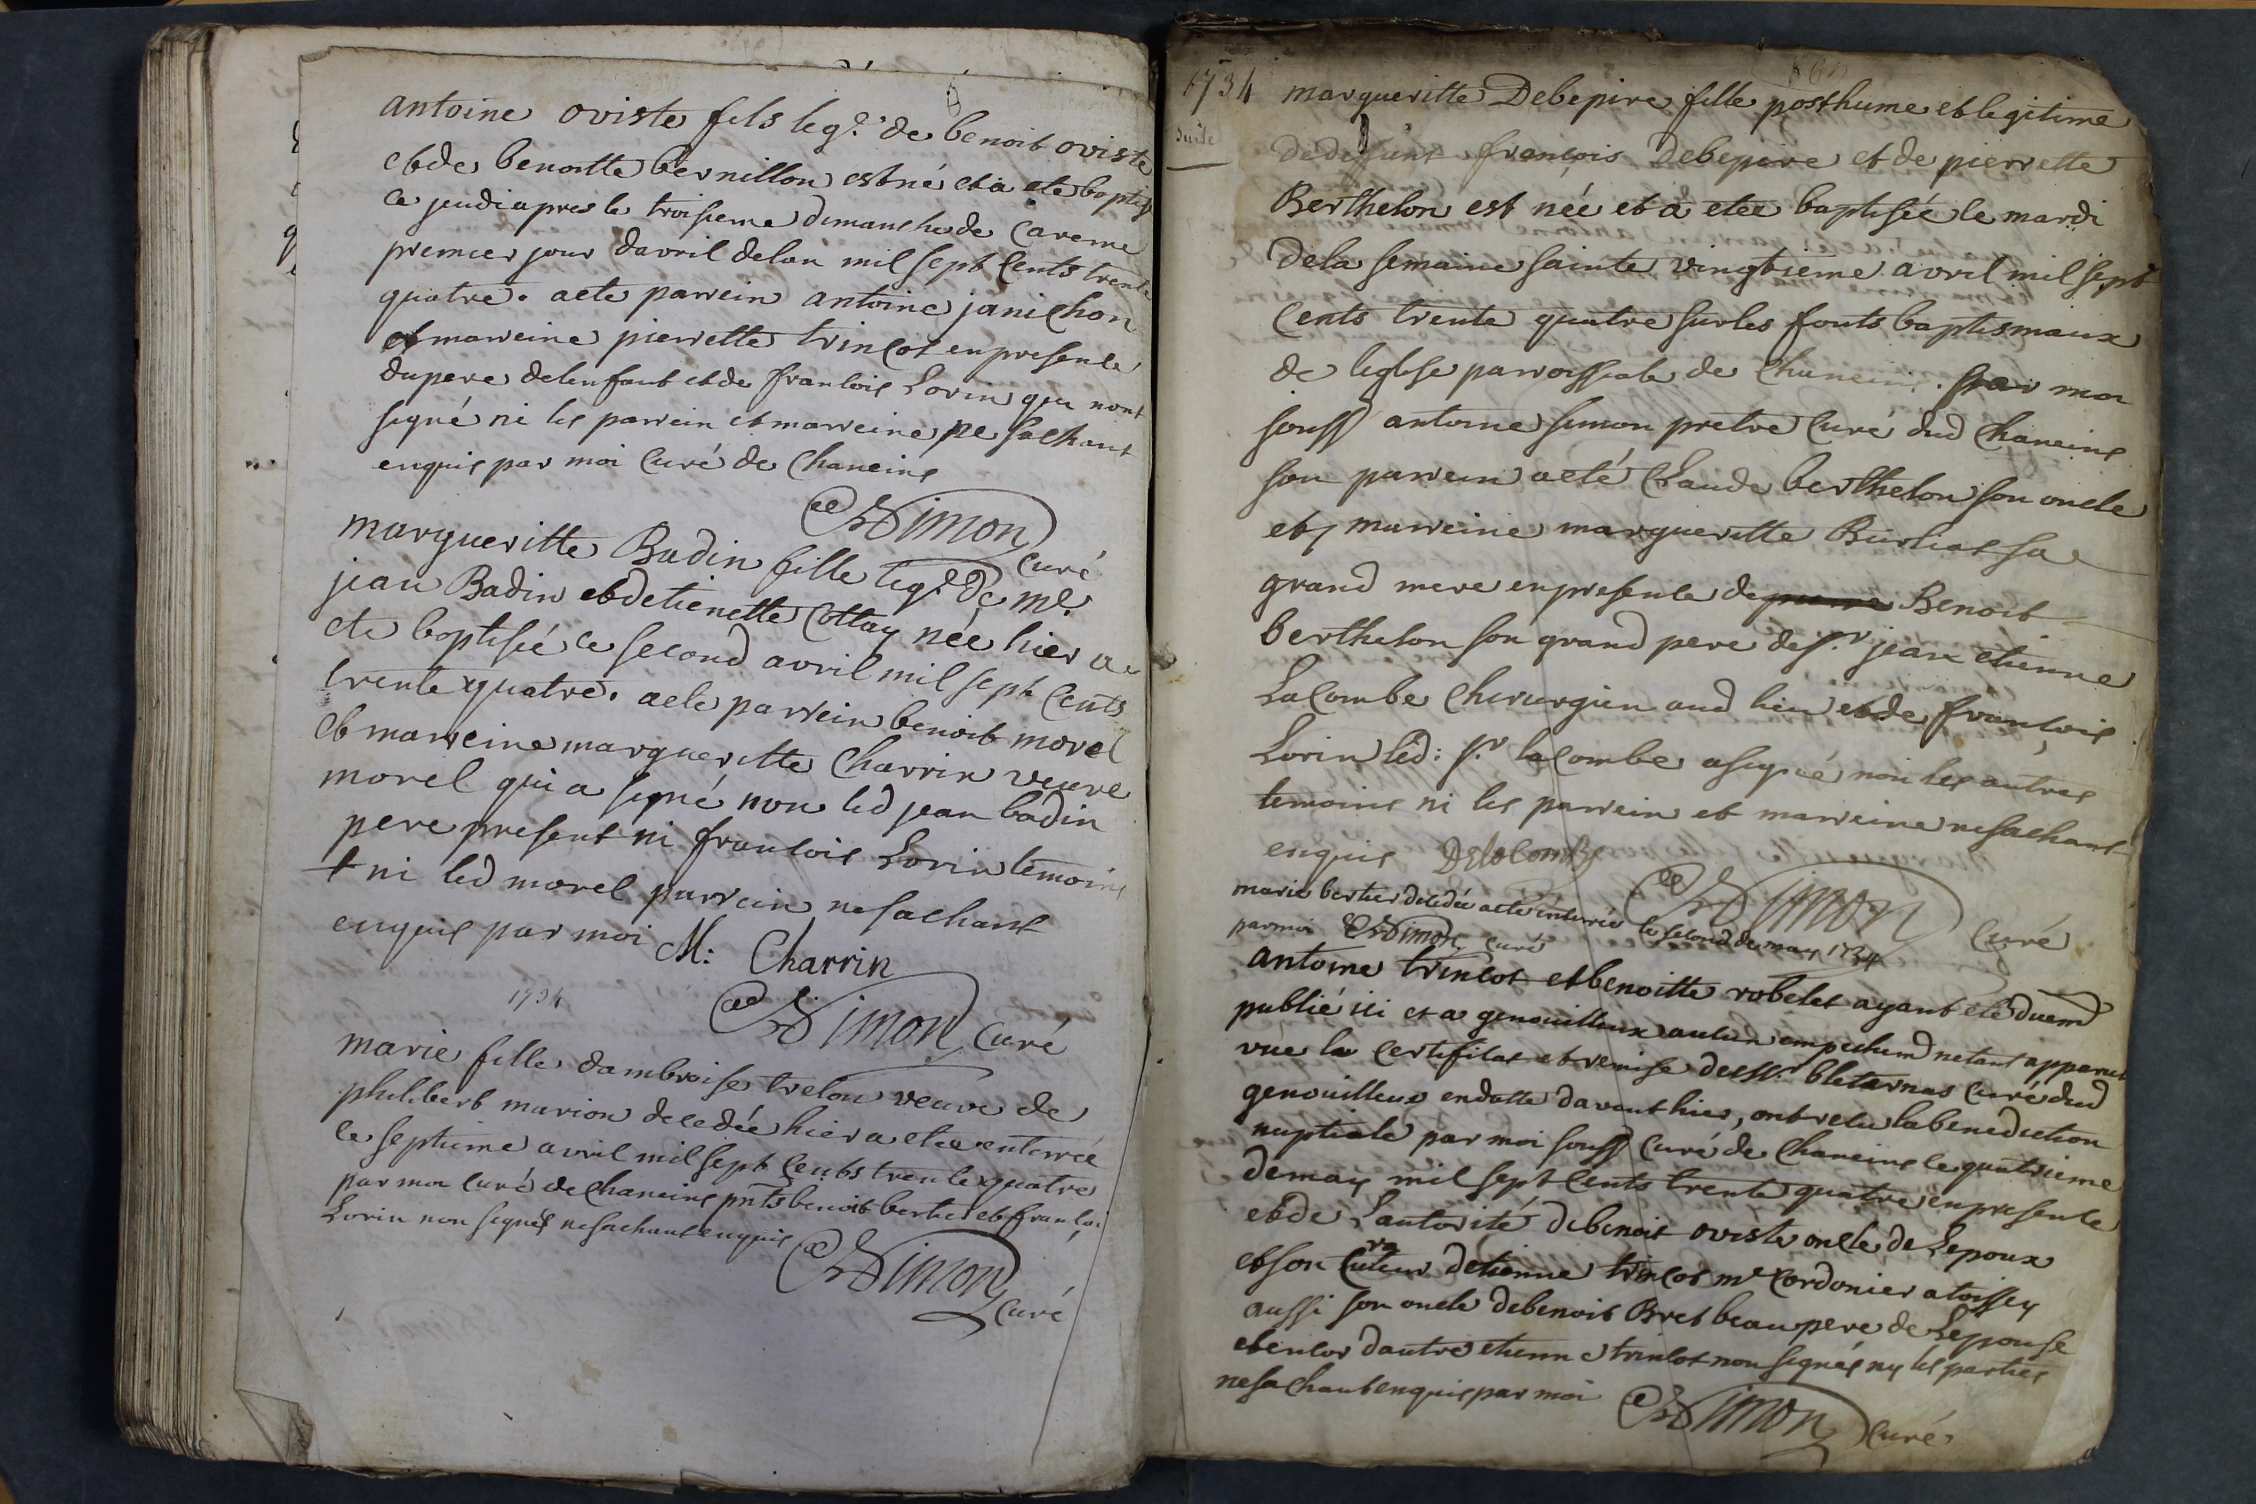 antoine oviste fils leg.e de benoit oviste
et de benoitte bernillon est né et a ete baptisé
ce jeudi apres le troisieme dimanche de careme
premier jour davril de lan mil sept cents trente
quatre. a ete parrein antoine janichon
et marreine pierrette trincot en presence
du pere de lenfant et de francois Lorin qui nont
signé ni les parrein et marreine ne sachant
enquis par moi curé de Chaneins
Simon
curé
margueritte Badin fille leg.e de me.
jean Badin et detienette Cottay née hier a
ete baptisée ce second avril mil sept cents
trente quatre. a ete parrein benoit morel
et marreine margueritte Charrin veuve
morel qui a signé non led jean badin
pere present ni francois Lorin temoins
+ ni led morel parrein ne sachant
enquis par moi M: Charrin
1734
Simon curé
marie fille dambroise trelon veuve de
philibert marion decedée hier a etee enterrée
le septieme avril mil sept cents trente quatre
par moi curé de Chaneins pnts benoit bertier et francoi
Lorin non signés ne sachant enquis
Simon
curé
1734
suite
margueritte Debepire fille posthume et legitime
de deffunt françois Debepire et de pierrette
Berthelon est née et a etee baptisée le mardi
de la semaine sainte vingtieme avril mil sept
cents trente quatre sur les fonts baptismaux
de leglise parroissiale de Chaneins. par moi
souss antoine simon pretre curé dud Chaneins
son parrein a eté Claude berthelon son oncle
et marreine margueritte Burliat sa
grand mere en presence de Benoit
berthelon son grand pere de sr. jean etienne
Lacombe chirurgien aud lieu et de francois
Lorin led: sr. lacombe a signé non les autres
temoins ni les parrein et marreine ne sachant
enquis Delacombe
Simon curé
marie bertier decedée a ete enterrée le second de may 1734
par moi Simon curé
antoine trincot et benoitte robelet ayant eté duemd
publié ici et a genouilleux aucun empechemd netant apparu
vue le certificat et remise de Mr. bletarnas curé dud
genouilleux en datte davant hier, ont recu la benediction
nuptiale par moi souss curé de Chaneins le quatrieme
de may mil sept cents trente quatre en presence
et de Lautorité de benoit oviste oncle de Lepoux
et son curateur detienne trincot me cordonier a toissey
aussi son oncle de benoit Bret beau pere de Lepouse
et encor dautre etienne trincot non signés ny les parties
ne sachant enquis par moi Simon curé.